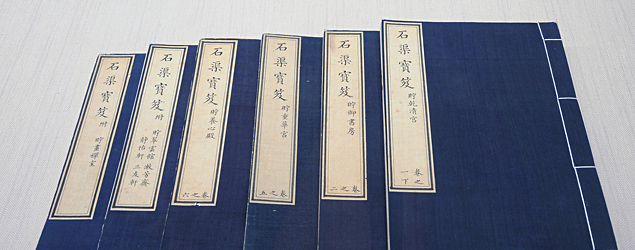 石渠寶笈
貯乾清宮
卷之
一下
石渠寶笈
貯御書房
卷之二
石渠寶笈
貯重華宮
卷之五
石渠寶笈
貯養心殿
卷之六
石渠寶笈
貯翠雲館 漱芳齋
靜怡軒 三友軒
石渠寶笈
貯畫禪室